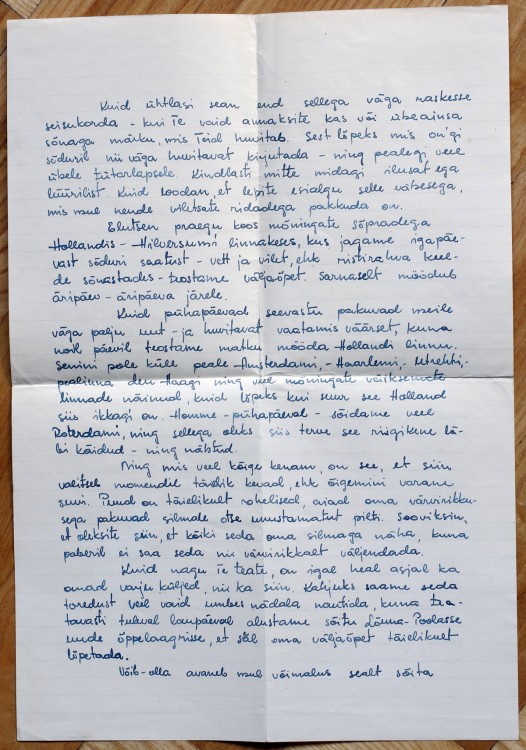 Kuid ühtlasi sean end sellega väga raskesse
seisukorda - kui Te vaid annaksite kas või üheainsa
sõnaga märku, mis Teid huvitab. Sest lõpeks mis on'gi
sõduril nii väga huvitavat kirjutada - ning pealegi veel
ühele tütarlapsele. Kindlasti mitte midagi ilusat ega
lüürilist. Kuid loodan, et lepite esialgu selle vähesega,
mis mul nende viletsate ridadega pakkuda on.
Elutsen praegu koos mõningate sõpradega
Hollandis - Hilversumi linnakeses, kus jagame igapäe-
vast sõduri saatust - vett ja vilet, ehk ristirahva keel-
de sõnastades - teostame väljaõpet. Sarnaselt möödub
äripäev - äripäeva järele.
Kuid pühapäevad seevastu pakuvad meile
väga palju uut - ja huvitavat vaatamis väärset, kuna
noil päevil teostame matku mööda Hollandi linnu.
Senini pole küll peale Amsterdami, - Haarlemi, - Utrehti, -
pealinna den Haagi ning veel mõningate väiksemate
linnade näinud, kuid lõpeks kui suur see Holland
siis ikkagi on. Homme - pühapäeval - sõidame veel
Roterdami, ning sellega oleks siis terve see riigikene lä-
bi käidud - ning nähtud.
Ning mis veel kõige kenam, on see, et siin
valitseb momendil täielik kevad, ehk õigemini varane
suvi. Puud on täielikult rohelised, aiad oma värvirikku-
sega pakuvad silmale otse unustamatut pilti. Sooviksin,
et oleksite siin, et kõiki seda oma silmaga näha, kuna
paberil ei saa seda nii värvirikkalt väljendada.
Kuid nagu Te teate, on igal heal asjal ka
omad varjuküljed, nii ka siin. Kahjuks saame seda
toredust veel vaid umbes nädala nautida, kuna tea-
tavasti tuleval laupäeval alustame sõitu Lõuna-Poolasse
uude õppelaagrisse, et seal oma väljaõpet täielikult
lõpetada.
Võib-olla avaneb mul võimalus sealt sõita